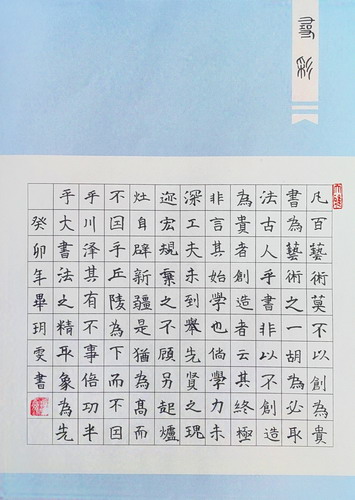 尋彩
凡百藝術莫不以創為貴
書為藝術之一胡為必取
法古人乎書非以不創造
為貴者創造者云其終極
非言其始學也倘學力未
深工夫未到舉先賢之瑰
迩宏規棄之不顧另起爐
灶自辟新疆是猶為髙而
不因乎丘陵為下而不因
乎川泽其有不事倍功半
乎大書法之精取象為先
癸卯年畢玥雯書